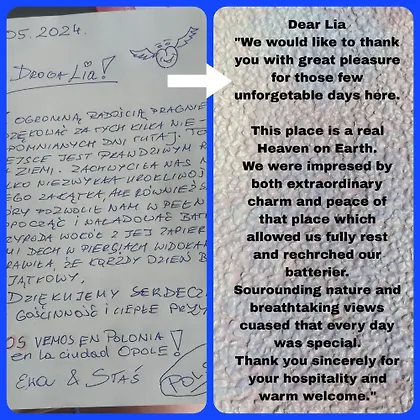 05.2024.
DROGA Lia!
OGROMNĄ RADOŚCIĄ PRAGNIE
ZA TYCH KILKA NIE-
DNI TUTAJ. TO
JEST PRAWDZIWYM
ZIEMI. ZACHWYCIŁA NAS
NIEZWYKŁA UROKLIWO
ZAKĄTKA, ALE RÓWNIEŻ
POZWOLIŁ NAM W PEŁN
I NAŁADOWAĆ BAT
WOKÓŁ Z JEJ ZAPIER
MI DECH W PIERSIACH WIDOKA
ŻE KAŻDY DZIEŃ B
JĄTKOWY.
DZIĘKUJEMY SERDECZ
GOŚCINNOŚĆ I CIEPŁE PRZY
OS VEMOS EN POLONIA
en la ciudad OPOLE!
EWA & STAŚ
POL
Dear Lia
"We would like to thank
you with great pleasure
for those few
unforgetable days here.
This place is a real
Heaven on Earth.
We were impresed by
both extraordinary
charm and peace of
that place which
allowed us fully rest
and rechrched our
batterier.
Sourounding nature and
breathtaking views
cuased that every day
was special.
Thank you sincerely for
your hospitality and
warm welcome."